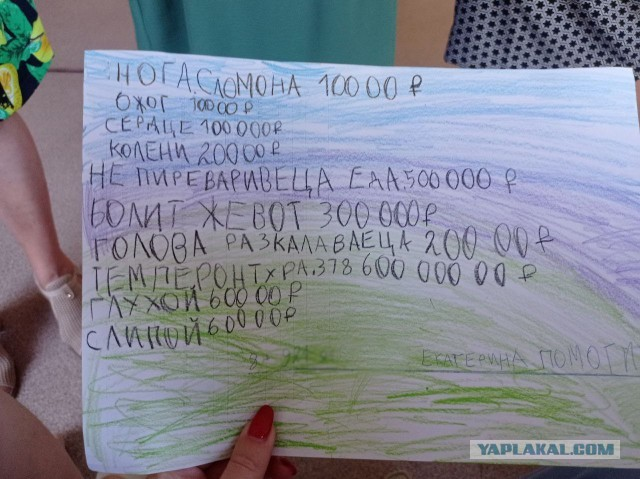 НОГА СЛОМОНА 10000 ₽
ОЖОГ 10000 ₽
СЕРДЦЕ 100000₽
КОЛЕНИ 20000₽
НЕ ПИРЕВАРИВЕЦА ЕДА.500000 ₽
БОЛИТ ЖЕВОТ 300000₽
ГОЛОВА РАЗКАЛАВАЕЦА 20000 ₽
ТЕМПЕРОНТХРА.378 60000000 ₽
ГЛУХОЙ 60000₽
СЛИПОЙ 60000₽
ЕКАТЕРИНА ПОМОГИ
YAPLAKAL.COM